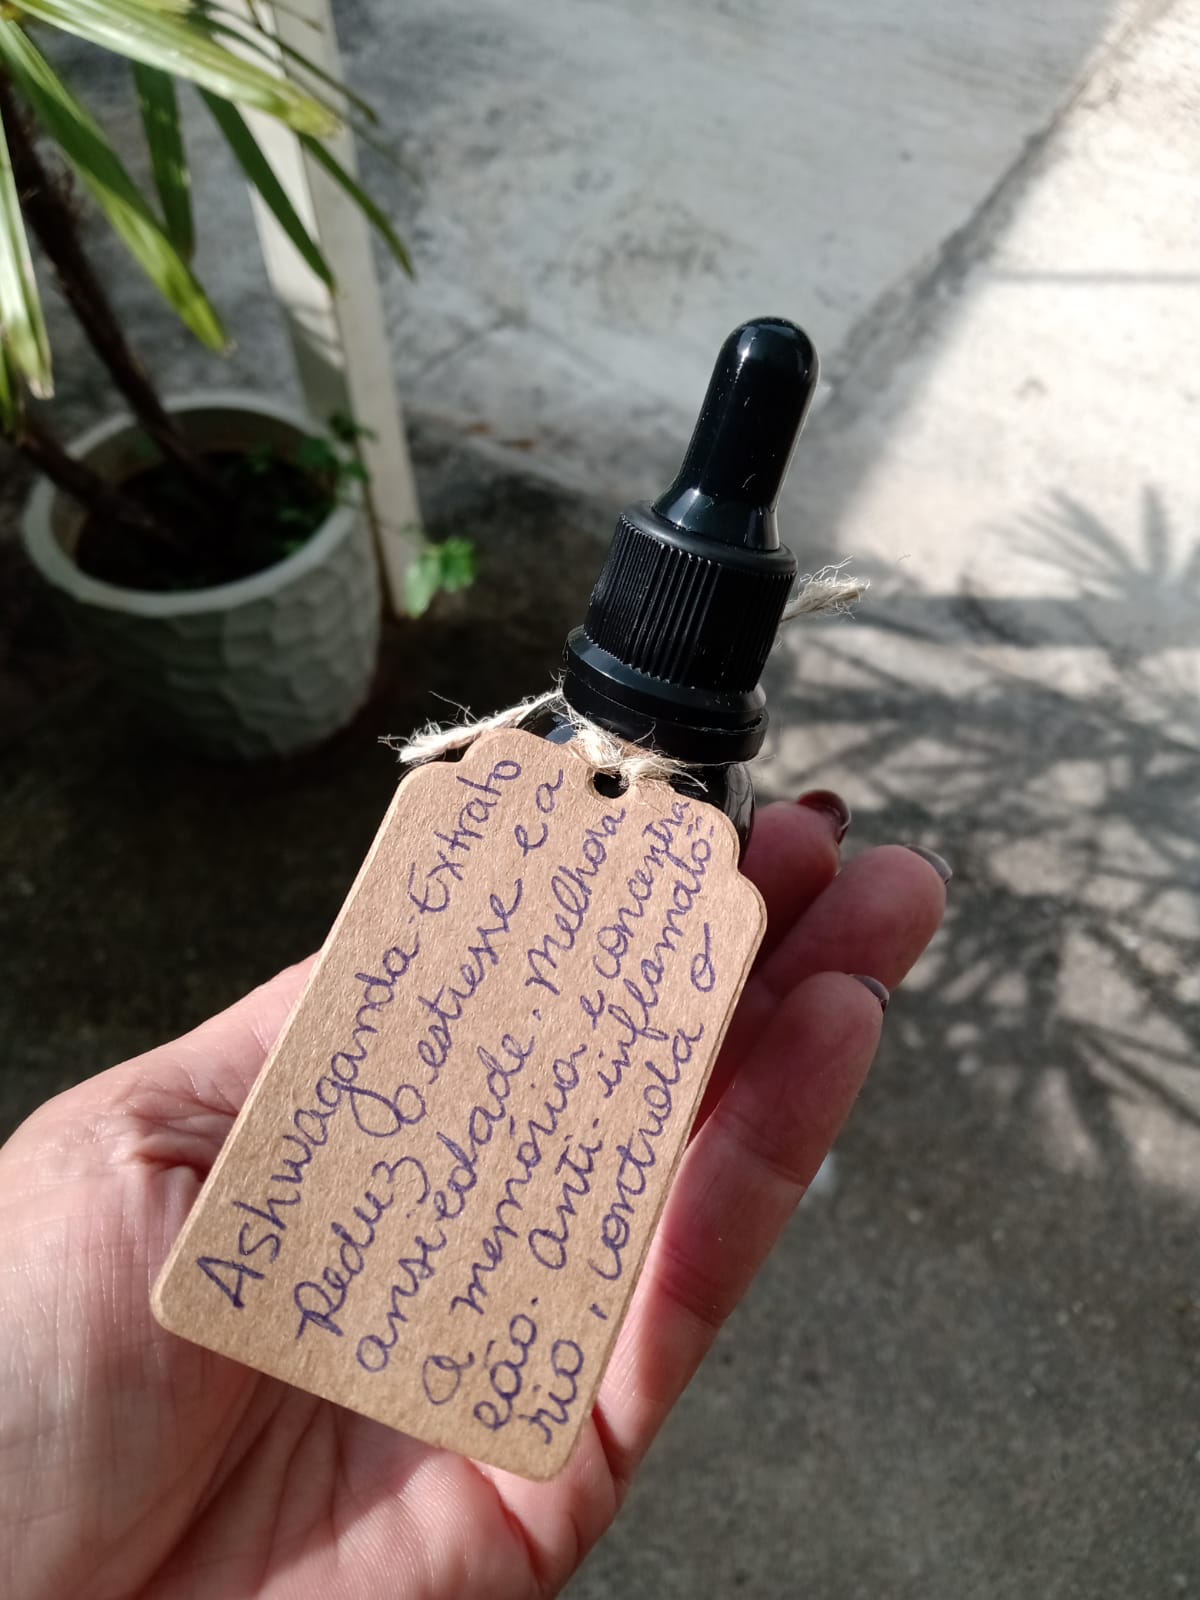 Ashwaganda-Extrato
Reduz o estresse e a
ansiedade. Melhora
a memória e concentra
ção. Anti-inflamató=
rio, controla o